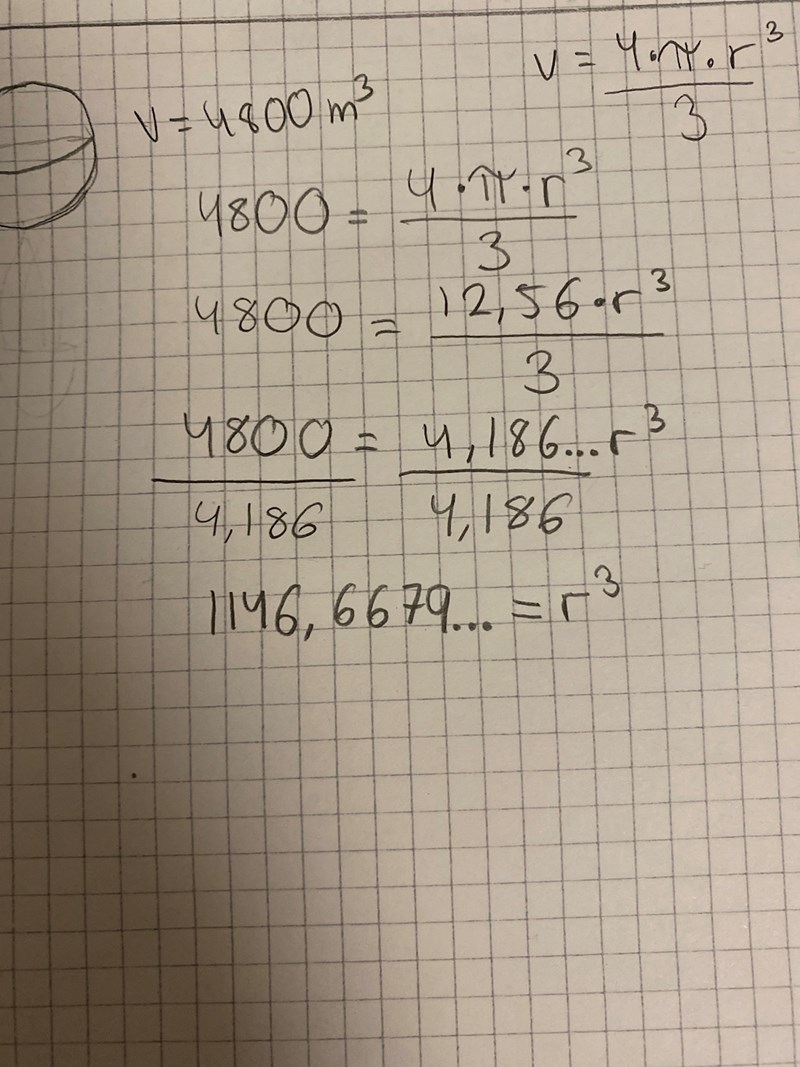 V = 4·π·r³/3
V = 4800 m³
4800 = 4·π·r³/3
4800 = 12,56·r³/3
4800/4,186 = 4,186...r³/4,186
1146,6679... = r³